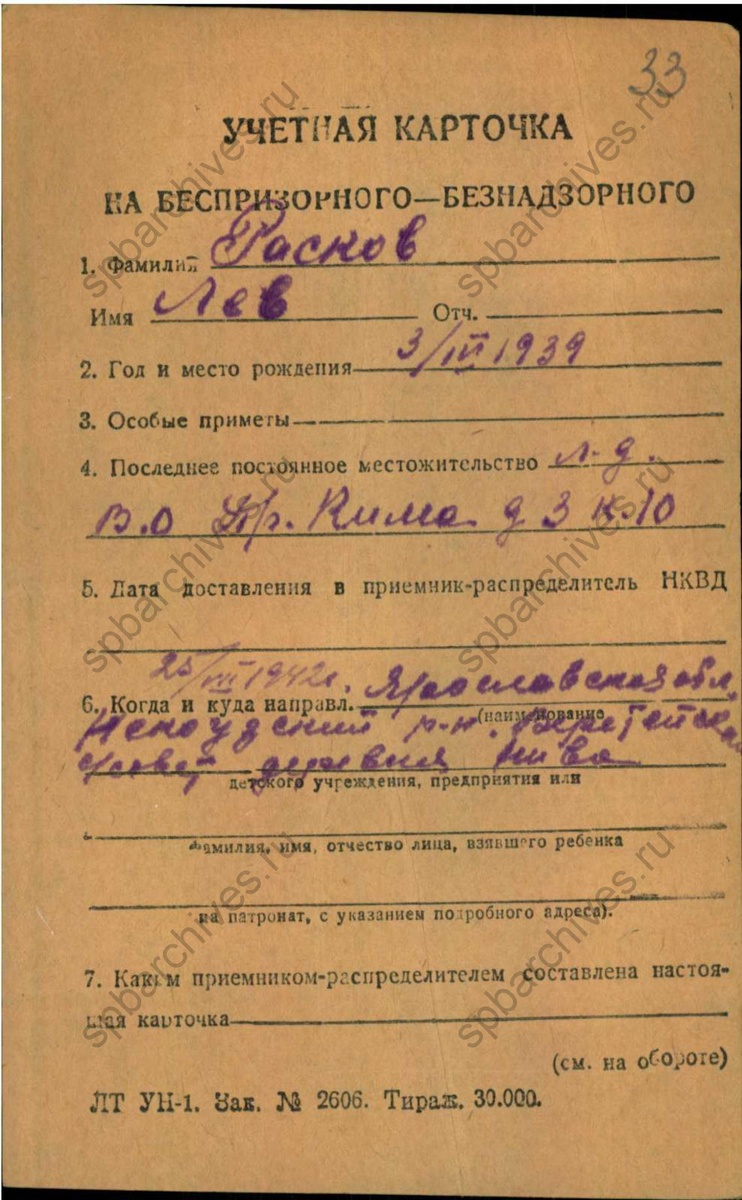 33
УЧЕТНАЯ КАРТОЧКА
НА БЕСПРИЗОРНОГО—БЕЗНАДЗОРНОГО
1. Фамилия Расков
Имя Лев Отч.
2. Год и место рождения 3/III 1939
3. Особые приметы
4. Последнее постоянное местожительство л-д.
В.О Пр. Кима д 3 к. 10
5. Дата доставления в приемник-распределитель НКВД
25/VII 1942г.
6. Когда и куда направл. Ярославская обл.
(наименование
Некоузский р-н.
совет деревня Нива
детского учреждения, предприятия или
фамилия, имя, отчество лица, взявшего ребенка
на патронат, с указанием подробного адреса).
7. Каким приемником-распределителем составлена настоя-
щая карточка
(см. на обороте)
ЛТ УН-1. Зак. № 2606. Тираж. 30.000.
spbarchives.ru
spbarchives.ru
spbarchives.ru
spbarchives.ru
spbarchives.ru
spbarchives.ru